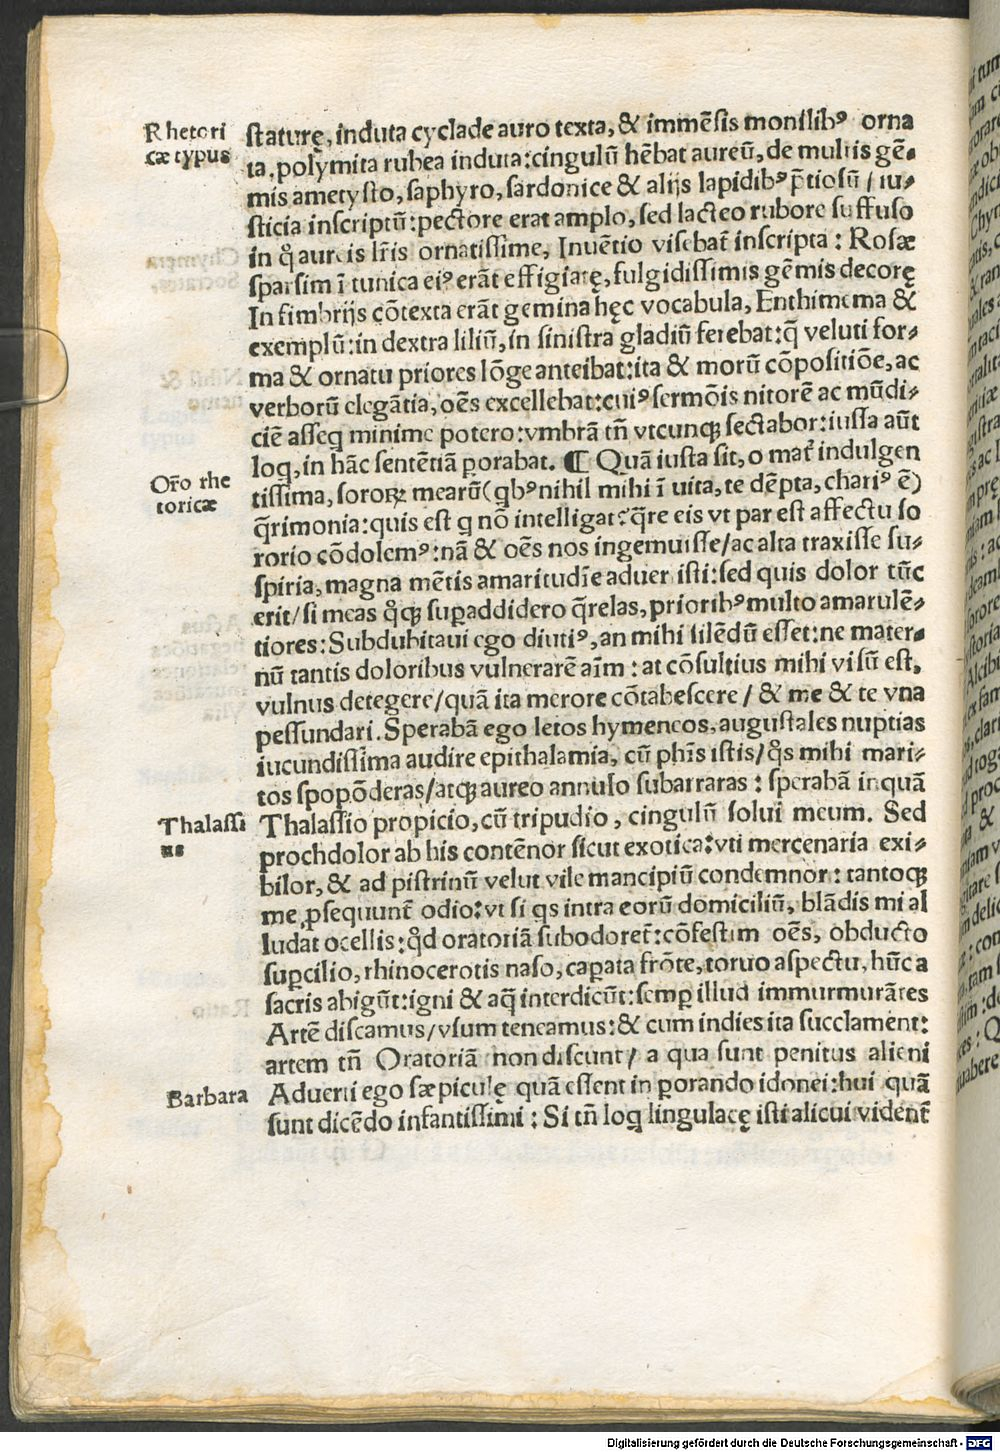 Rhetori
cæ typus
staturę, induta cyclade auro texta, & immēsis monilibꝰ orna
ta, polymita rubea induta: cingulū hēbat aureū, de multis gē-
mis ametysto, saphyro, sardonice & alijs lapidibꝰ p̄tiosū / iu-
sticia inscriptū: pectore erat amplo, sed lacteo rubore suffuso
in q̊ aureis lr̄is ornatissime, Inuētio visebat̄ inscripta: Rosæ
sparsim ī tunica eiꝰ erāt effigiatę, fulgidissimis gēmis decorę
In fimbrijs cōtexta erāt gemina hęc vocabula, Enthimema &
exemplū: in dextra liliū, in sinistra gladiū ferebat: q̄ veluti for-
ma & ornatu priores lōge anteibat: ita & morū cōpositiōe, ac
verborū elegātia, oēs excellebat: cuiꝰ sermōis nitorē ac mūdi-
ciē asseq minime potero: vmbrā tn̄ vtcunqꝫ sectabor: iussa aūt
loq, in hāc sentētiā ꝑorabat. ¶ Quā iusta sit, o mat̄ indulgen
Orō rhe
toricæ
tissima, sororꝝ mearū (qbꝰ nihil mihi ī uita, te dēpta, chariꝰ ē)
q̄rimonia: quis est q nō intelligat? q̄re eis vt par est affectu so
rorio cōdolemꝰ: nā & oēs nos ingemuisse / ac alta traxisse su-
spiria, magna mētis amaritudīe aduerti sti: sed quis dolor tūc
erit / si meas q̊qꝫ suꝑaddidero q̄relas, prioribꝰ multo amarulē-
tiores: Subdubitaui ego diutiꝰ, an mihi silēdū esset: ne mater-
nū tantis doloribus vulnerarē aīm: at cōsultius mihi visū est,
vulnus detegere / quā ita merore cōtabescere / & me & te vna
pessundari. Sperabā ego letos hymeneos, augustales nuptias
iucundissima audire epithalamia, cū phīs istis / q̊s mihi mari-
tos spopōderas / atqꝫ aureo annulo subarraras: sperabā inquā
Thalassi
us
Thalassio propicio, cū tripudio, cingulū solui meum. Sed
prochdolor ab his contēnor sicut exotica: vti mercenaria exi-
bilor, & ad pistrinū velut vile mancipiū condemnor: tantoqꝫ
me ꝑsequunt̄ odio: vt si qs intra eorū domiciliū, blādis mi al
ludat ocellis: q̊d oratoriā subodoret̄: cōfestim oēs, obducto
suꝑcilio, rhinocerotis naso, caperata frōte, toruo aspectu, hūc a
sacris abigūt: igni & aq̄ interdicūt: semꝑ illud immurmurātes
Artē discamus / vsum teneamus: & cum indies ita succlament:
artem tn̄ Oratoriā non discunt / a qua sunt penitus alieni
Barbara
Aduerti ego sæpiculę quā essent in ꝑorando idonei: hui quā
sunt dicēdo infantissimi: Si tn̄ loq lingulacę isti alicui vident̄
Digitalisierung gefördert durch die Deutsche Forschungsgemeinschaft - DFG